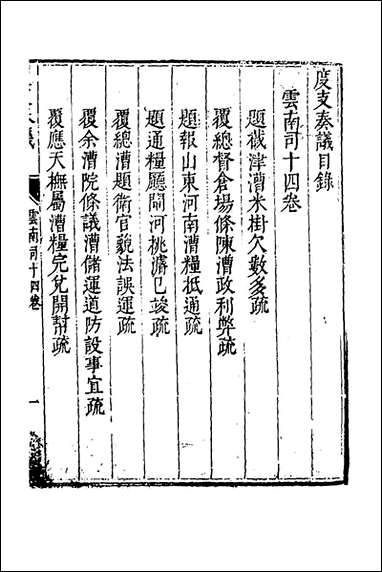 度支奏議目錄
雲南司十四卷
題截津漕米掛欠數多疏
覆總督倉場條陳漕政利弊疏
題報山東河南漕糧抵通疏
題通糧廳閘河挑濬已竣疏
覆總漕題衛官藐法誤運疏
覆余漕院條議漕儲運道防設事宜疏
覆應天撫屬漕糧完兌開幇疏
雲南司十四卷
一